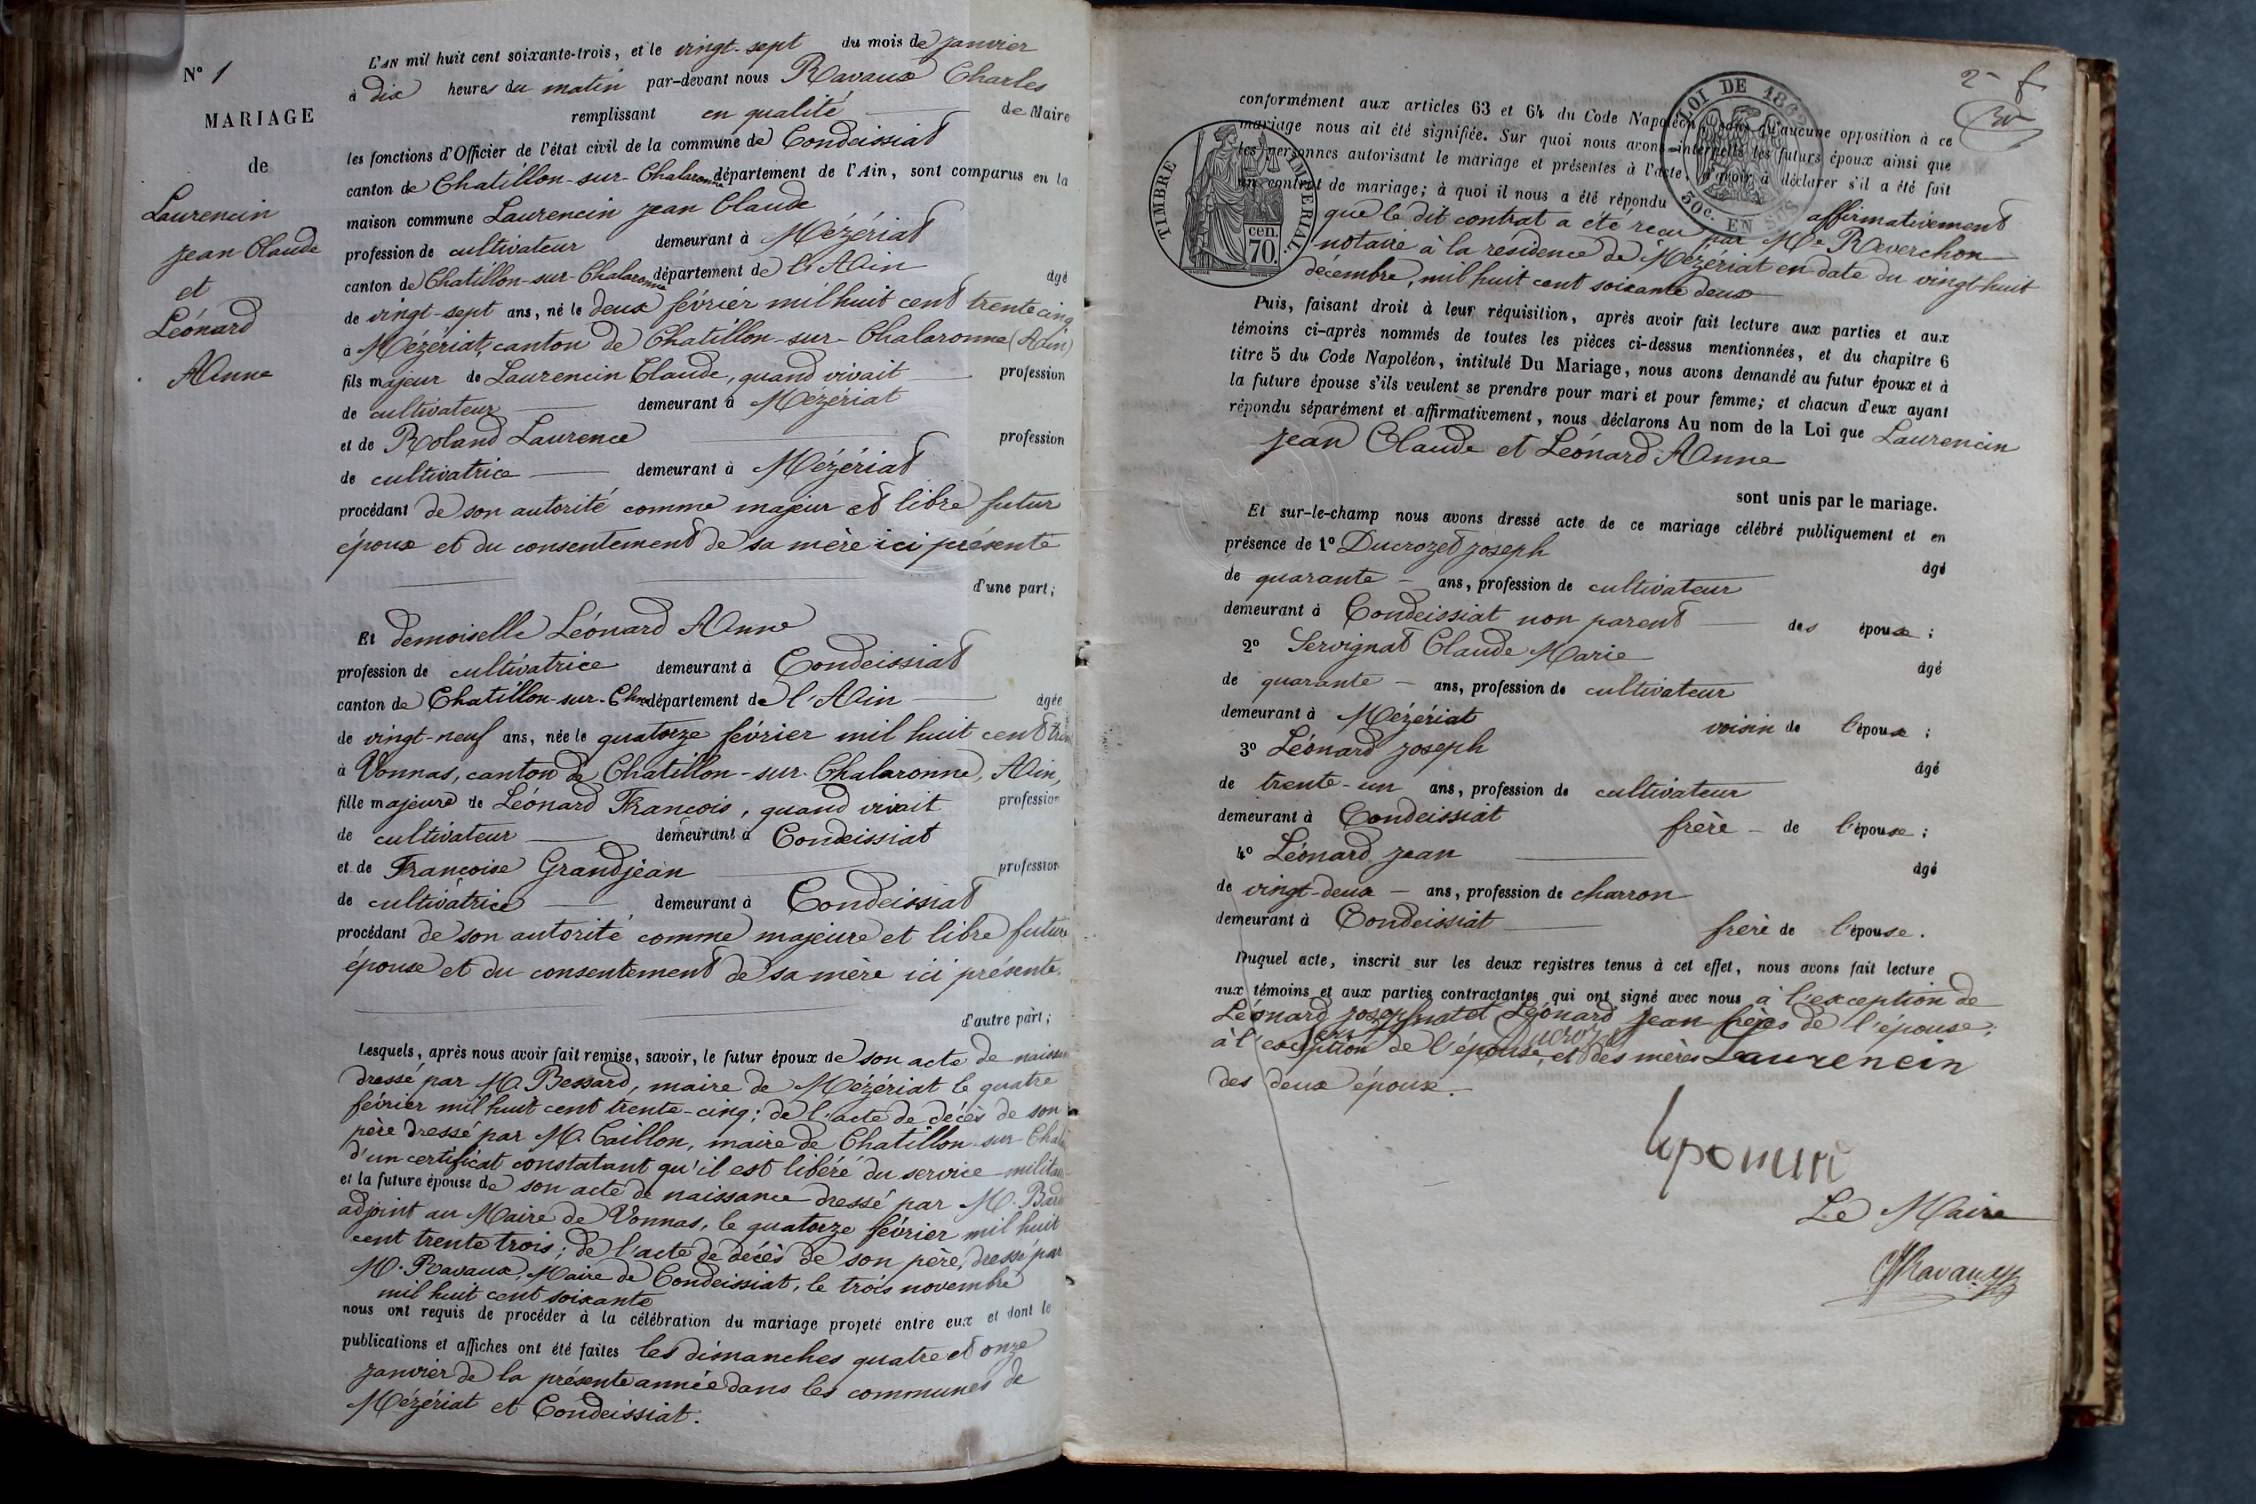 N° 1
MARIAGE
de
Laurencin
Jean Claude
et
Léonard
Anne
L'AN mil huit cent soixante-trois, et le vingt-sept du mois de janvier
à dix heures du matin par-devant nous Ravaux Charles
remplissant en qualité de Maire
les fonctions d'Officier de l'état civil de la commune de Condeissiat
canton de Chatillon-sur-Chalaronne département de l'Ain, sont comparus en la
maison commune Laurencin Jean Claude
profession de cultivateur demeurant à Mézériat
canton de Chatillon-sur-Chalaronne département de l'Ain âgé
de vingt-sept ans, né le deux février mil huit cent trente cinq
à Mézériat, canton de Chatillon-sur-Chalaronne (Ain)
fils majeur de Laurencin Claude, quand vivait profession
de cultivateur demeurant à Mézériat
et de Roland Laurence profession
de cultivatrice demeurant à Mézériat
procédant de son autorité comme majeur et libre futur
époux et du consentement de sa mère ici présente
d'une part;
Et demoiselle Léonard Anne
profession de cultivatrice demeurant à Condeissiat
canton de Chatillon-sur-Cha département de l'Ain âgée
de vingt-neuf ans, née le quatorze février mil huit cent
à Vonnas, canton de Chatillon-sur-Chalaronne, Ain,
fille majeure de Léonard François, quand vivait profession
de cultivateur demeurant à Condeissiat
et de Françoise Grandjean profession
de cultivatrice demeurant à Condeissiat
procédant de son autorité comme majeure et libre future
épouse et du consentement de sa mère ici présente.
d'autre part;
Lesquels, après nous avoir fait remise, savoir, le futur époux de son acte de naiss
dressé par M. Bessard, maire de Mézériat le quatre
février mil huit cent trente-cinq; de l'acte de décès de son
père dressé par M. Caillon, maire de Chatillon-sur-Chal
d'un certificat constatant qu'il est libéré du service militai
et la future épouse de son acte de naissance dressé par M.
adjoint au Maire de Vonnas, le quatorze février mil huit
cent trente trois; de l'acte de décès de son père, dressé par
M. Ravaux, Maire de Condeissiat, le trois novembre
mil huit cent soixante
nous ont requis de procéder à la célébration du mariage projeté entre eux et dont le
publications et affiches ont été faites les dimanches quatre et onze
janvier de la présente année dans les communes de
Mézériat et Condeissiat.
2
LOI DE 1862
50c. EN SUS
TIMBRE IMPÉRIAL
70 cen.
conformément aux articles 63 et 64 du Code Napoléon, sans qu'aucune opposition à ce
mariage nous ait été signifiée. Sur quoi nous avons interpellé les futurs époux ainsi que
les personnes autorisant le mariage et présentes à l'acte, d'avoir à déclarer s'il a été fait
un contrat de mariage; à quoi il nous a été répondu affirmativement
que le dit contrat a été reçu par Me Reverchon
notaire à la residence de Mézériat en date du vingt-huit
décembre, mil huit cent soixante deux
Puis, faisant droit à leur réquisition, après avoir fait lecture aux parties et aux
témoins ci-après nommés de toutes les pièces ci-dessus mentionnées, et du chapitre 6
titre 5 du Code Napoléon, intitulé Du Mariage, nous avons demandé au futur époux et à
la future épouse s'ils veulent se prendre pour mari et pour femme; et chacun d'eux ayant
répondu séparément et affirmativement, nous déclarons Au nom de la Loi que Laurencin
Jean Claude et Léonard Anne
sont unis par le mariage.
Et sur-le-champ nous avons dressé acte de ce mariage célébré publiquement et en
présence de 1° Ducrozet Joseph âgé
de quarante ans, profession de cultivateur
demeurant à Condeissiat non parent des époux;
2° Servignat Claude Marie âgé
de quarante ans, profession de cultivateur
demeurant à Mézériat voisin de l'époux;
3° Léonard Joseph âgé
de trente-un ans, profession de cultivateur
demeurant à Condeissiat frère de l'épouse;
4° Léonard Jean âgé
de vingt-deux ans, profession de charron
demeurant à Condeissiat frère de l'épouse.
Duquel acte, inscrit sur les deux registres tenus à cet effet, nous avons fait lecture
aux témoins et aux parties contractantes qui ont signé avec nous à l'exception de
Léonard Joseph et Léonard Jean frères de l'épouse;
à l'exception de l'épouse, et des mères Laurencin
des deux époux.
Ducrozet
Le Maire
Ravaux